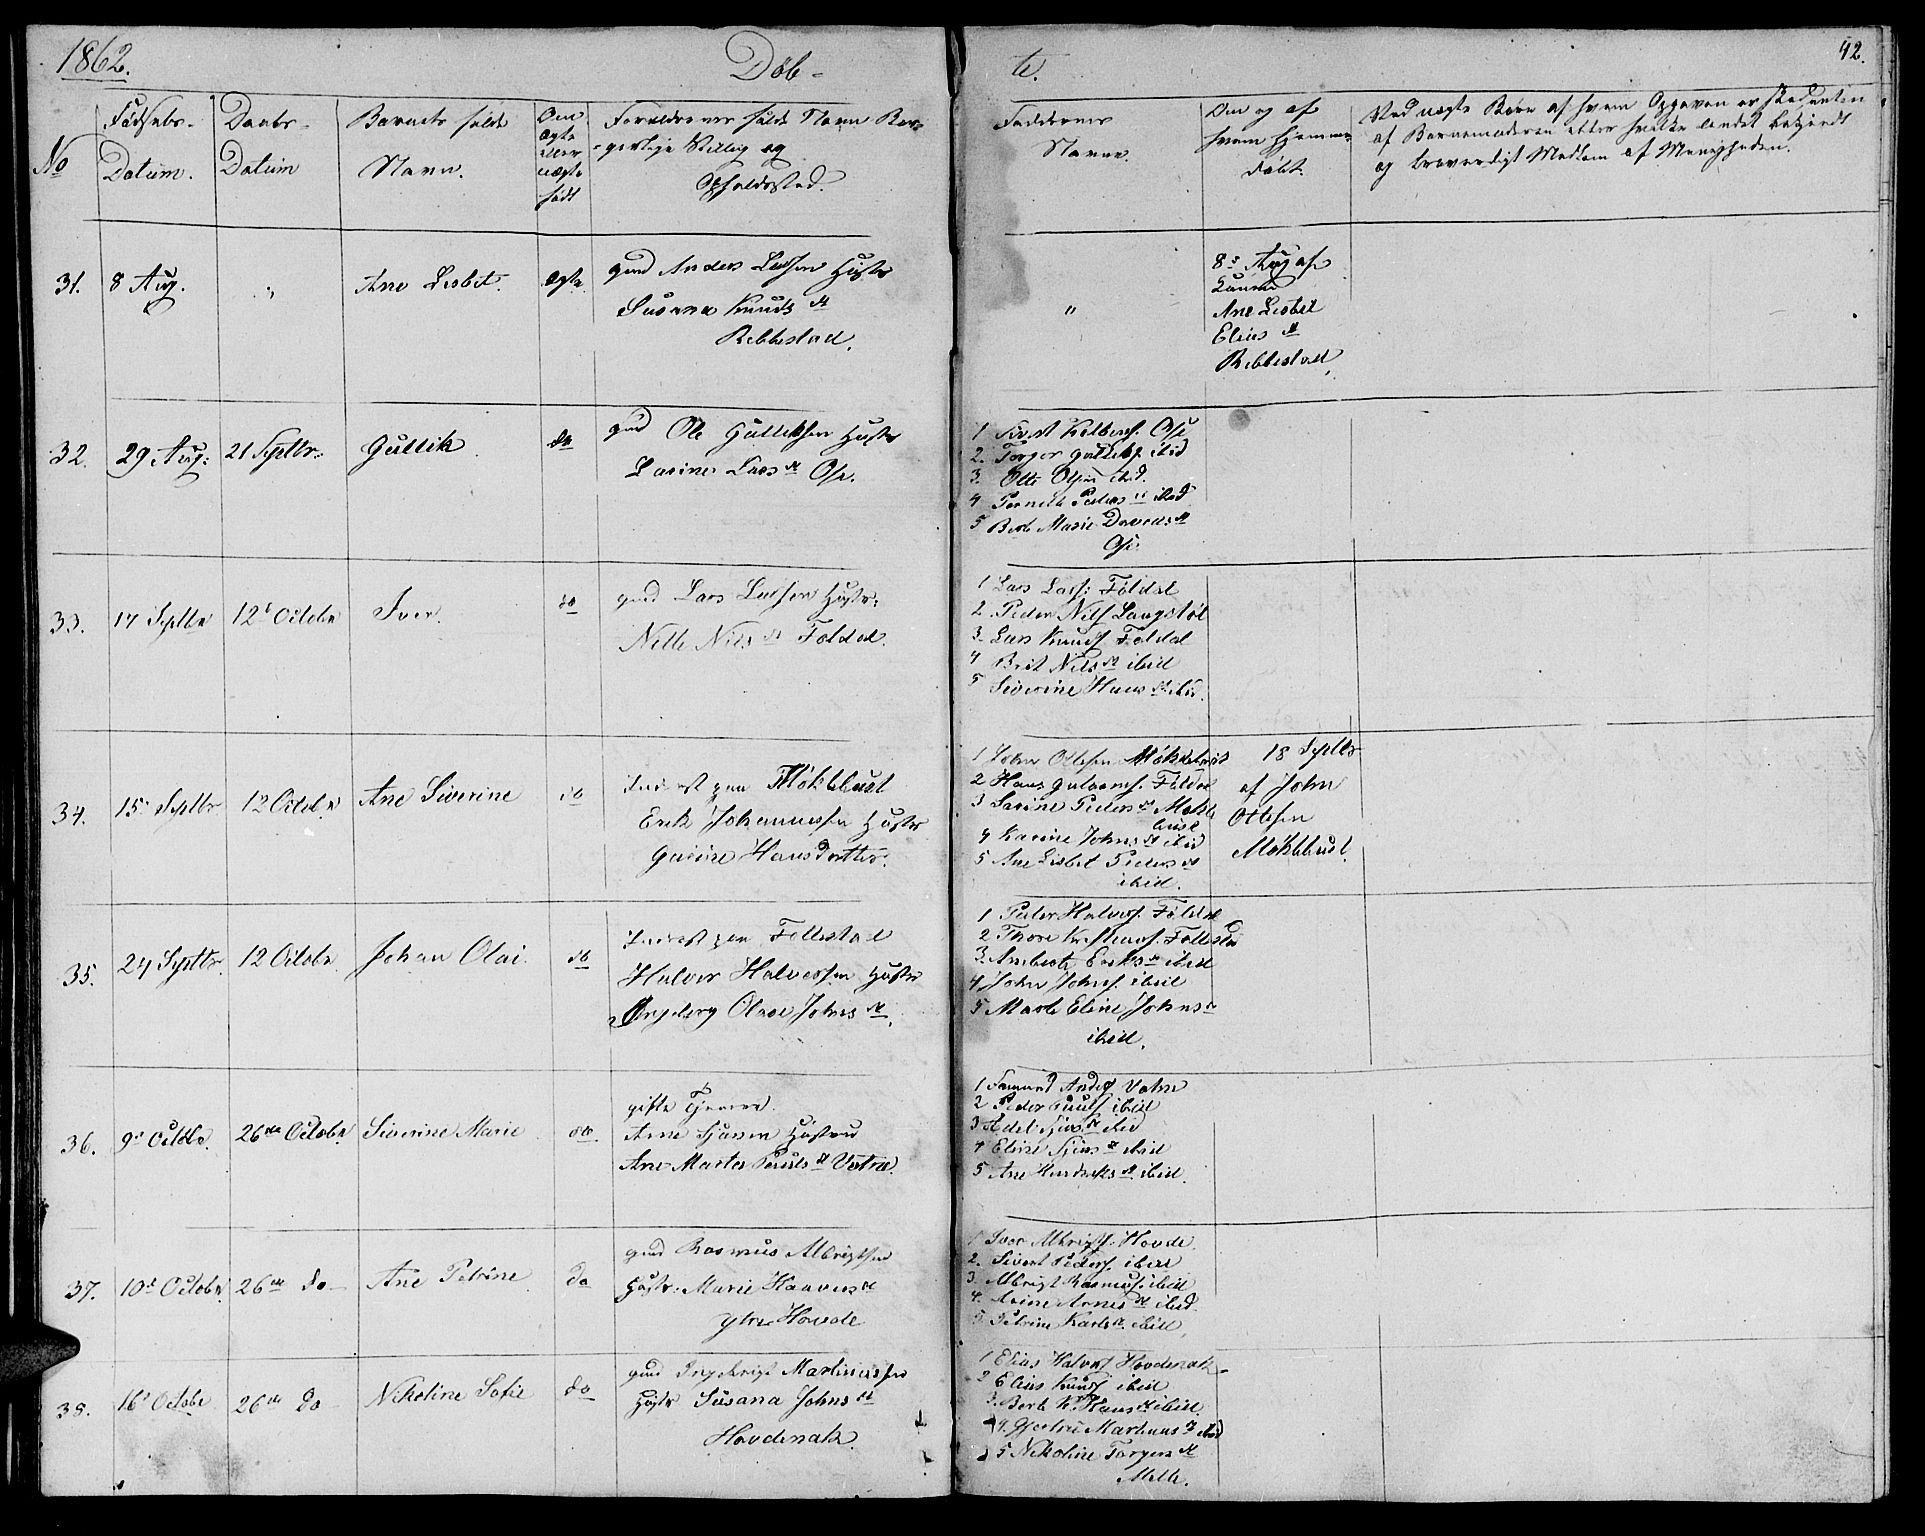 1862.
Döb-
te.
42.
No
Födsels-
Datum.
Daabs-
Datum
Barnets fulde
Navn.
Om
ægte
eller
uægte
født
Forældrenes fulde Navn Bor-
gerlige Stilling og
Opholdssted.
Faddernes
Navne.
Om og af
hvem hjemme-
döbt.
Ved uægte Børn af hvem Opgaven er
af Barnemoderen eller hvilke andet bekjendt
og troværdigt Medlem af Menigheden.
31.
8 Aug.
"
Ane Lisbet.
ægte
gmd Anders Larsen Hustr
Susanna Knuds D
Ribbestad.
"
8de Aug af
Ane Lisbet
Elias D
Ribbestad,
32.
29 Aug:
21 Septbr
Gullik
do
gmd Ole Gulliksen Hustr
Larine Lars D Ose.
1 Sivert Ose
2. Torger Gulliks. ibid
3. Otte Olsen ibid.
4 Pernille Peders D ibid
5 Berte Marie Davids D
Ose.
33.
17 Septbr
12t Octobr
Iver.
do
gmd Lars Larsen Hustr:
Nille Nils D Foldal.
1 Lars Lars: Földal
2. Peder Nils Langstöl
3. Lars Knuds. Foldal
4 Brit Nils D ibid
5 Severine Hans D ibid.
34.
15 Septbr
12 Octobr.
Ane Siverine
do
Inderst paa Möklebust
Erik Johannessen Hustr
Gurine Hansdatter.
1 John Ottesen Möklebust
2 Hans Földal
3 Larine Peders D Mökle
bust
4 Karine Johns D ibid
5 Ane Lisbet Peders D
ibid.
18 Septbr
af John
Ottesen
Möklebust.
35.
24 Septbr.
12 Octobr.
Johan Olai.
do
Inderst paa Follestad
Halvor Halvorsen Hustr
Ingeborg Oline Johns D.
1 Peder Halvors. Földal
2 Thore Follestad
3. Anbert Eriks D ibid
4 John Johns. ibid
5 Marte Eline Johns D
ibid.
36.
9de Octobr.
26de Octobr
Siverine Marie
do.
gifte
Arne Hustru
Ane Marta Pauls D Vatne.
1 Anders Vatne
2 Peder Pauls. ibid
3 ibid
4 Eline ibid
5 Ane ibid.
37.
10de Octobr.
26de do
Ane Petrine
do
gmd Rasmus Albrigtsen
Hustr: Marie Haavers D
ytre Hovde
1 Iver Albrigts. Hovde.
2. Sivert Peders. ibid
3. Albrigt Rasmus. ibid
4. Arnes D ibid.
5. Petrine Karls D ibid,
38.
16de Octobr
26de do
Nikoline Sofie
do
gmd Ingebrigt Martinussen
Hustr Susana Johns D
Hovdenak.
1 Elias Halvors Hovdenak
2 Elias Knuds ibid
3. Berte K. Hans D ibid
4. Martinus D ibid
5 Nikoline Torgers D
Melle.